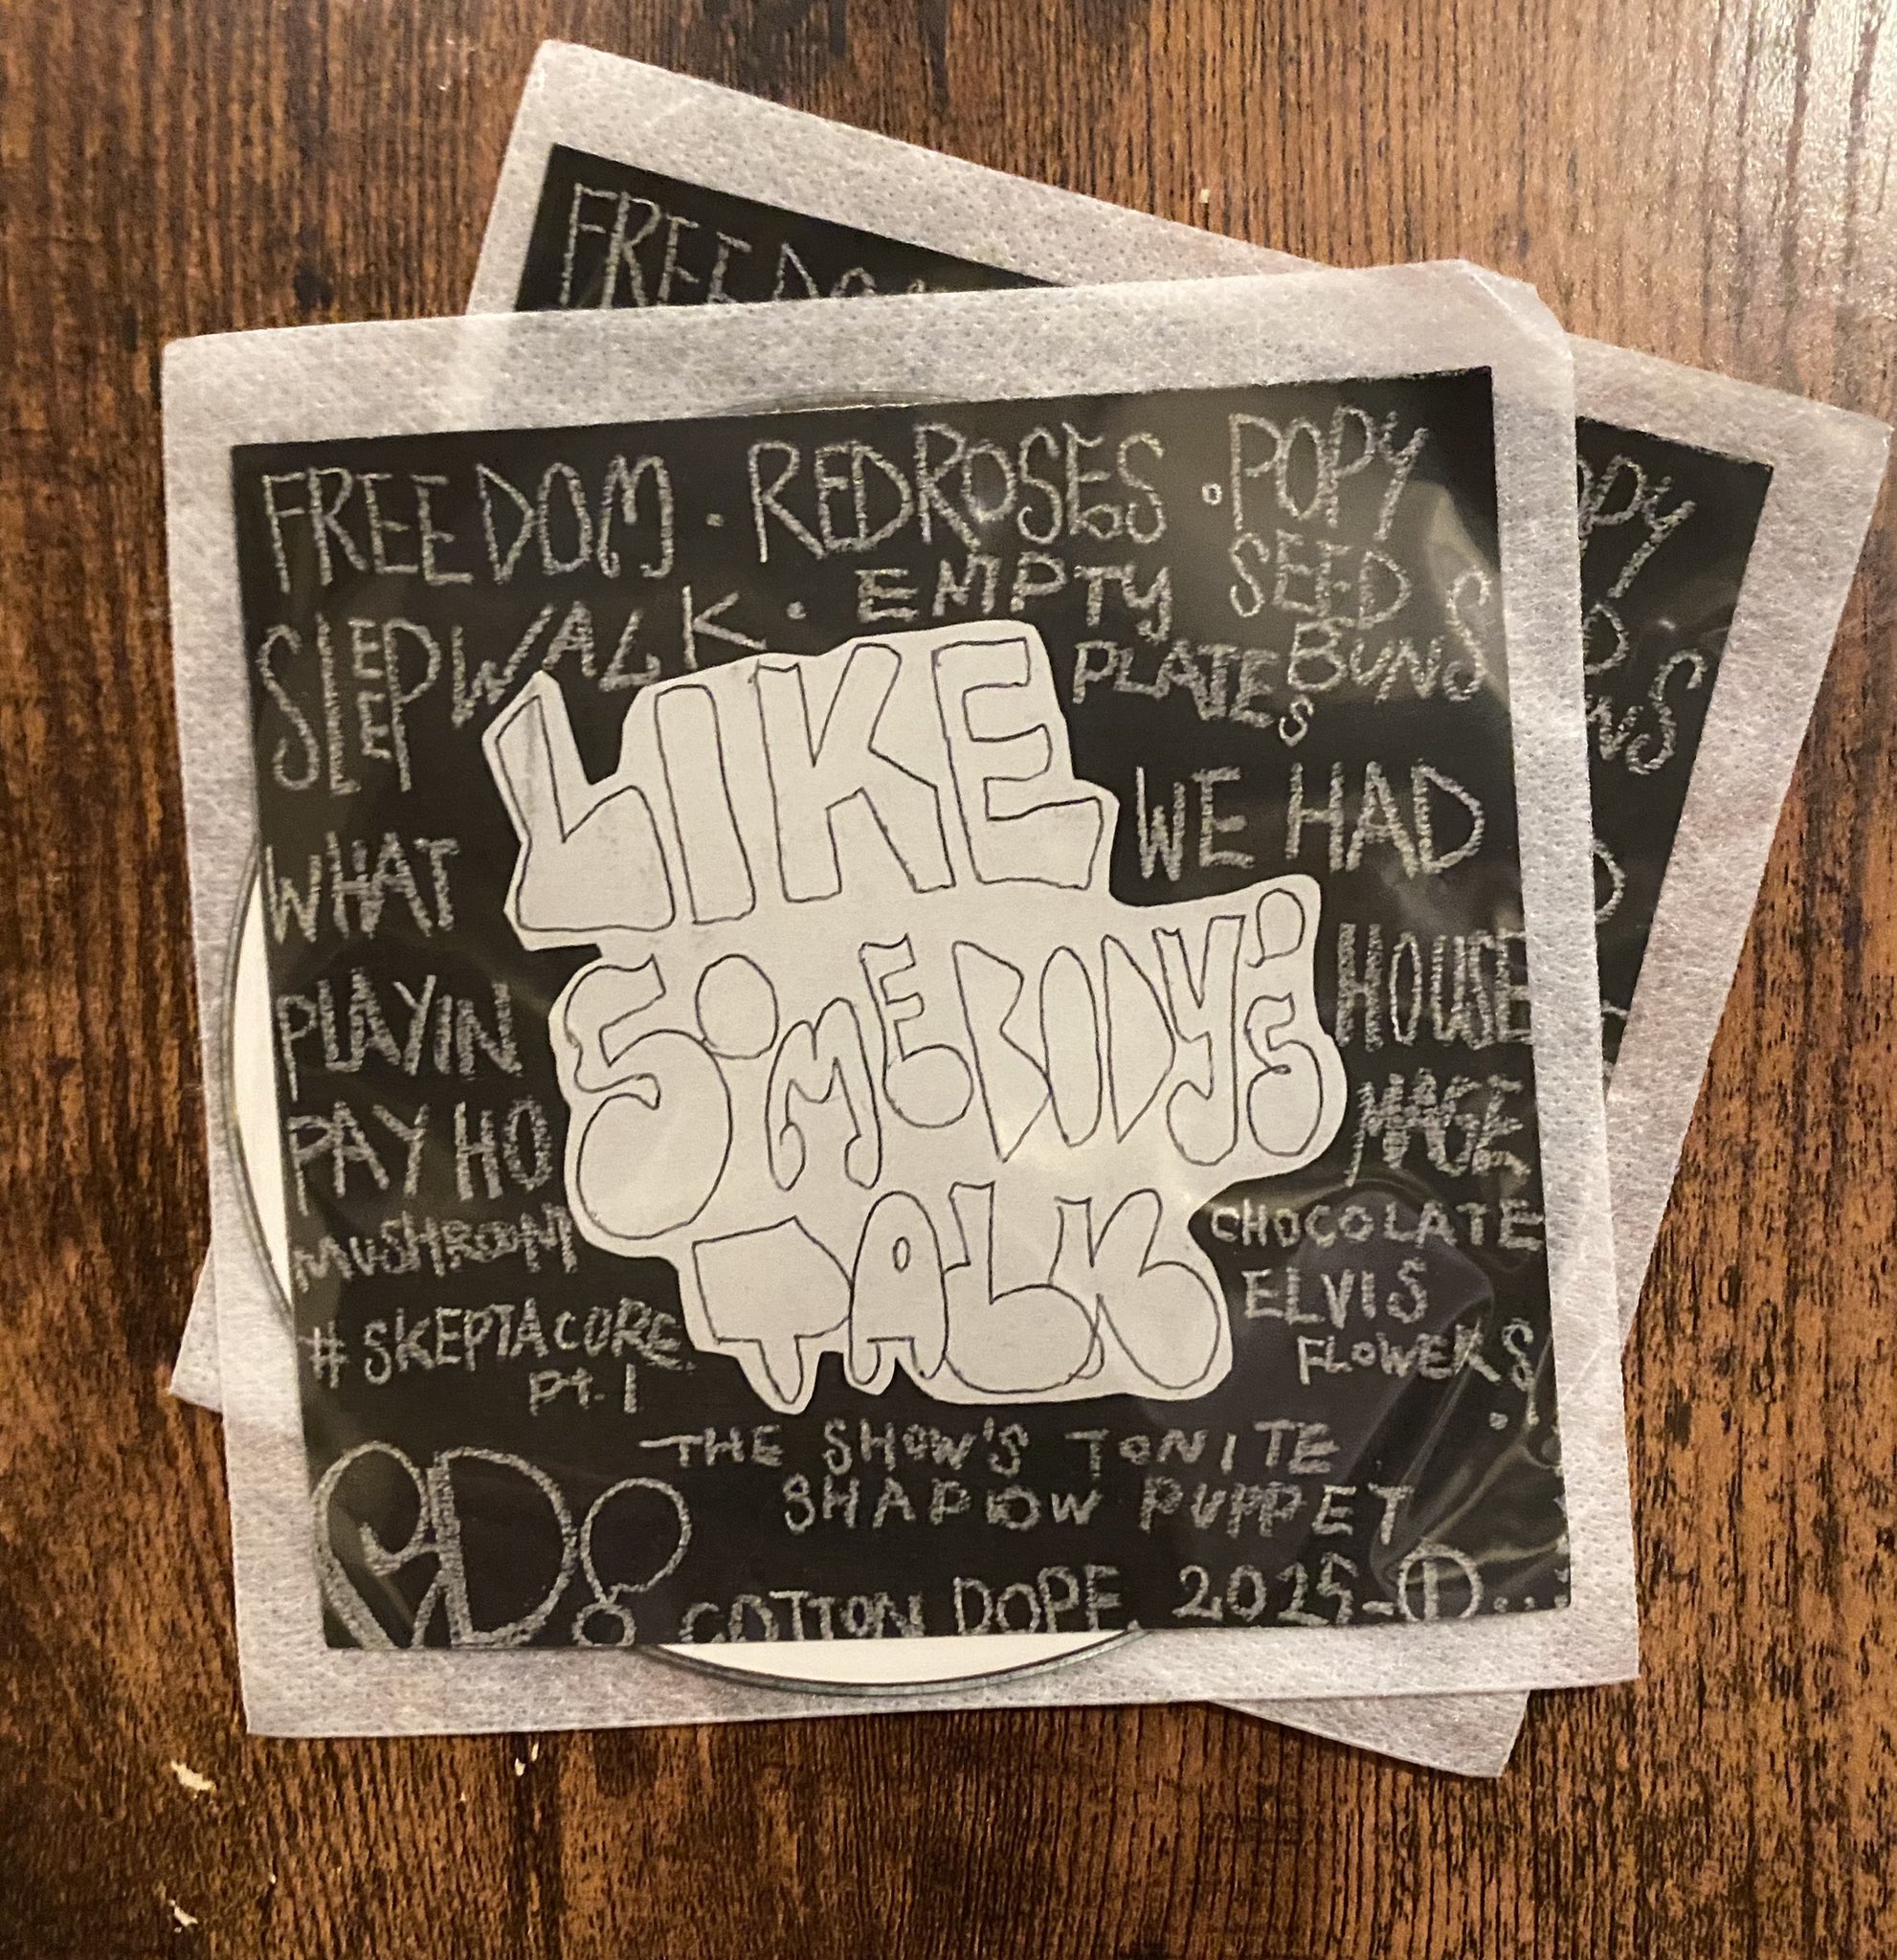 FREEDOM
FREEDOM · REDROSES · POPY
SEED
BUNS
SLEEPWALK · EMPTY
PLATES
LIKE
SOMEBODY'S
TALK
WHAT
PLAYIN
PAY HO
MUSHROOM
# SKEPTACORE
Pt. 1
WE HAD
HOUSE
MAGE
CHOCOLATE
ELVIS
FLOWERS
THE SHOW'S TONITE
SHADOW PUPPET
COTTON DOPE 2025-①...
OPY
D
NS
D